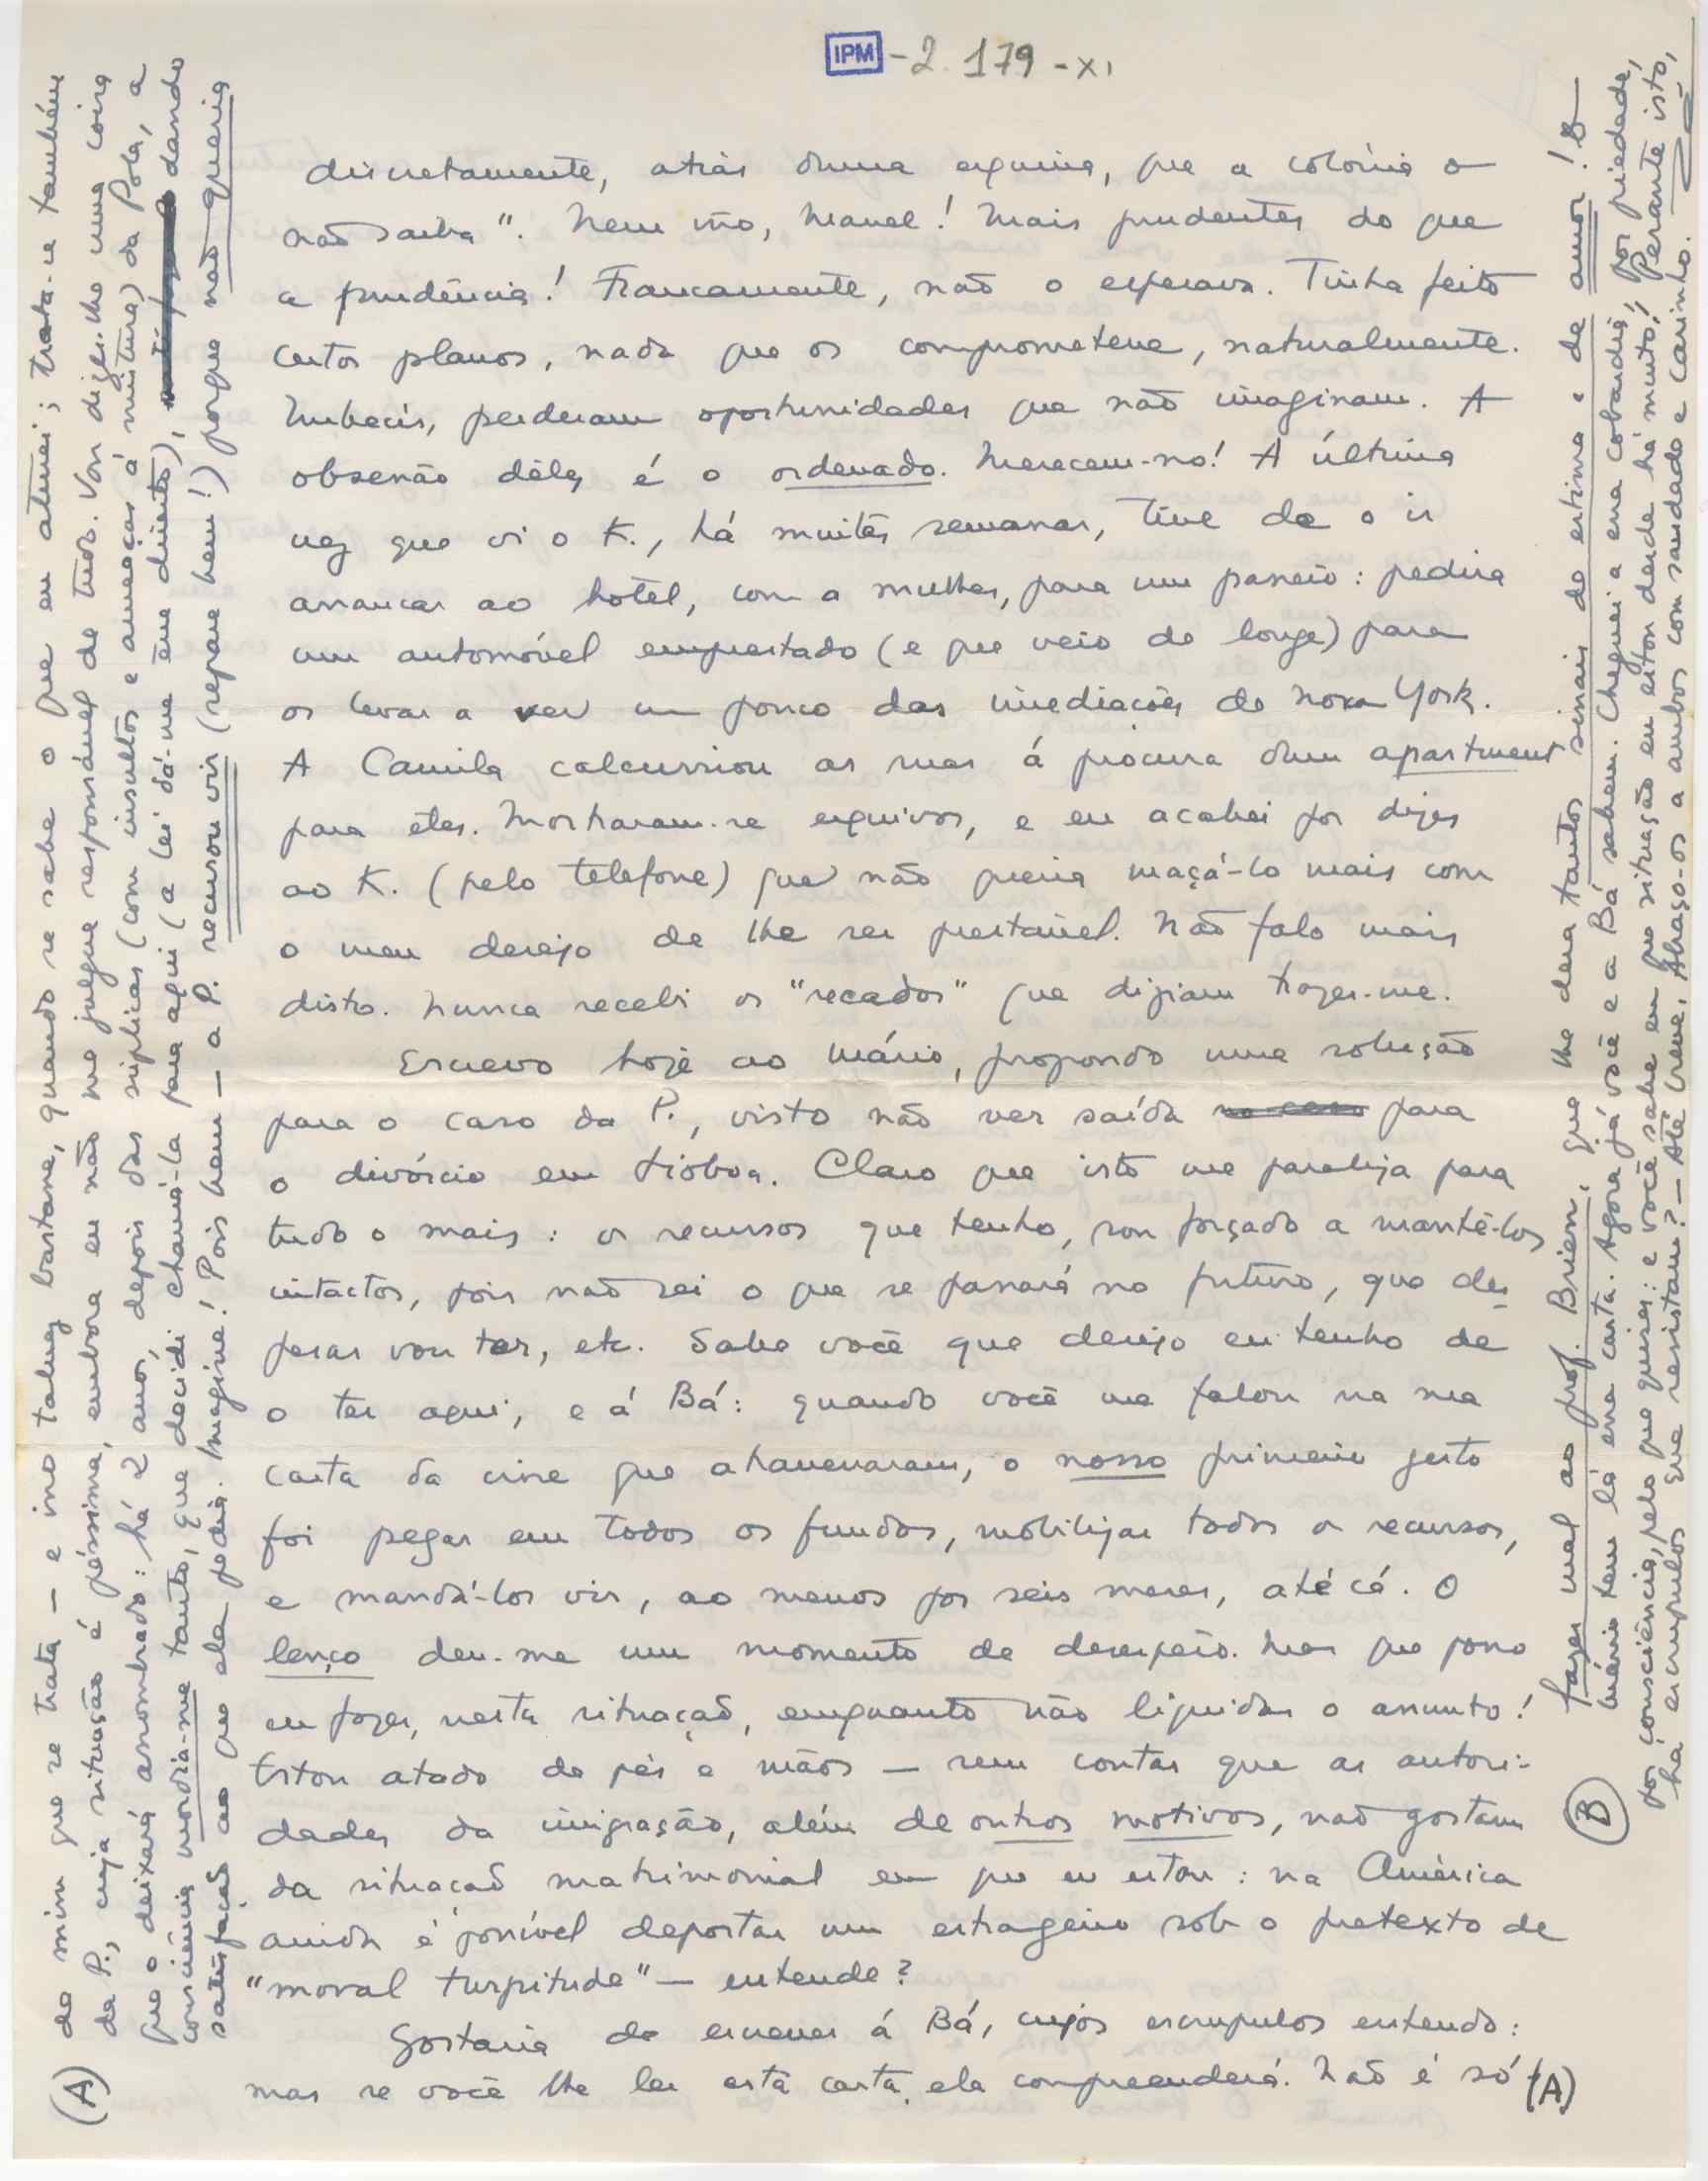 IPM - 2.179 - XI
discretamente, atrás duma esquina, que a colónia o
não saiba". Nem isso, Manel! Mais prudentes do que
a prudência! Francamente, não o esperava. Tinha feito
certos planos, nada que os comprometesse, naturalmente.
Imbecis, perderam oportunidades que não imaginam. A
obsessão dêles é o ordenado. Merecem-no! A última
vez que vi o K., há muitas semanas, tive de o ir
arrancar ao hotel, com a mulher, para um passeio: pedira
um automóvel emprestado (e que veio de longe) para
os levar a ver um pouco das imediações de Nova York.
A Camila calcurriou as ruas á procura dum apartment
para eles. Mostraram-se esquivos, e eu acabei por dizer
ao K. (pelo telefone) que não queria maçá-lo mais com
o meu desejo de lhe ser prestável. Não falo mais
disto. Nunca recebi os "recados" que diziam trazer-me.
Escrevo hoje ao Mário, propondo uma solução
para o caso da P., visto não ver saída no caso para
o divórcio em Lisboa. Claro que isto me paraliza para
tudo o mais: os recursos que tenho, sou forçado a mantê-los
intactos, pois não sei o que se passará no futuro, que des-
pesas vou ter, etc. Sabe você que desejo eu tenho de
o ter aqui, e á Bá: quando você me falou na sua
carta da crise que atravessaram, o nosso primeiro gesto
foi pegar em todos os fundos, mobilizar todos os recursos,
e mandá-los vir, ao menos por seis meses, até cá. O
lenço deu-me um momento de desespêro. Mas que posso
eu fazer, nesta situação, emquanto não liquidar o assunto!
Estou atado de pés e mãos — sem contar que as autori-
dades da imigração, além de outros motivos, não gostam
da situação matrimonial em que eu estou: na América
ainda é possível deportar um estrageiro sob o pretexto de
"moral turpitude" — entende?
Gostaria de escrever á Bá, cujos escrupulos entendo:
mas se você lhe ler esta carta, ela compreenderá. Não é só (A)
(A) de mim que se trata — e isso talvez bastasse, quando se sabe o que eu aturei; trata-se também
da P., cuja situação é péssima, embora eu não me julgue responsável de tudo. Vou dizer-lhe uma coisa
que o deixará assombrado: há 2 anos, depois das súplicas (com insultos e ameaças á mistura) da Pola, a
consciência mordia-me tanto, que decidi chamá-la para aqui (a lei dá-me êsse direito), dando
satisfação ao que ela pedia. Imagine! Pois bem — a P. recusou vir (repare bem!) porque não queria
(B) fazer mal ao prof. Brien, que lhe dera tantos sinais de estima e de amor! O
Mário tem lá essa carta. Agora já você e a Bá sabem. Cheguei a essa cobardia, por piedade,
por consciência, pelo que quiser: e você sabe em que situação eu estou desde há muito! Perante isto,
ha escrupulos que resistam? — Até breve. Abraço-os a ambos com saudade e carinho.